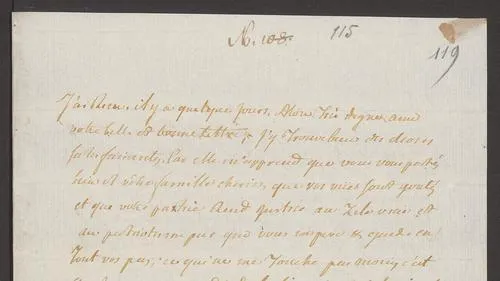 N. 108. 115
119
J'ai Recu, il y a quelque jours, Mon Très digne ami
votre belle et bonne lettre, j'y trouve bien des choses
satisfaisantes, Car elle m'apprend que vous vous portés
bien et vôtre famille cherie, que vos vües sont goutés
et que votre patrie Rend justice au Zele vrai et
au patriotisme pur que vous inspire &
Tout vos pas; ce qui ne me Touche pas moins, c'est